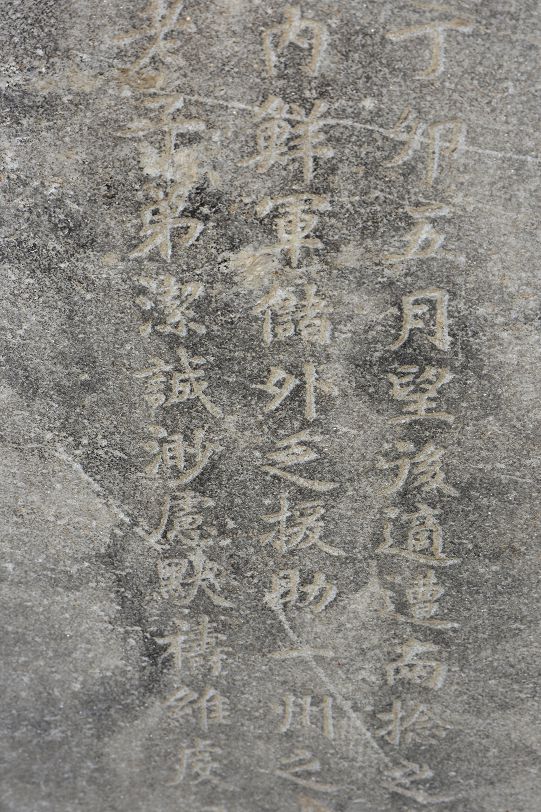 丁卯五月望後適遭南捻之
內鮮軍儲外乏援助一州之
老子弟潔誠渺慮默禱維虔